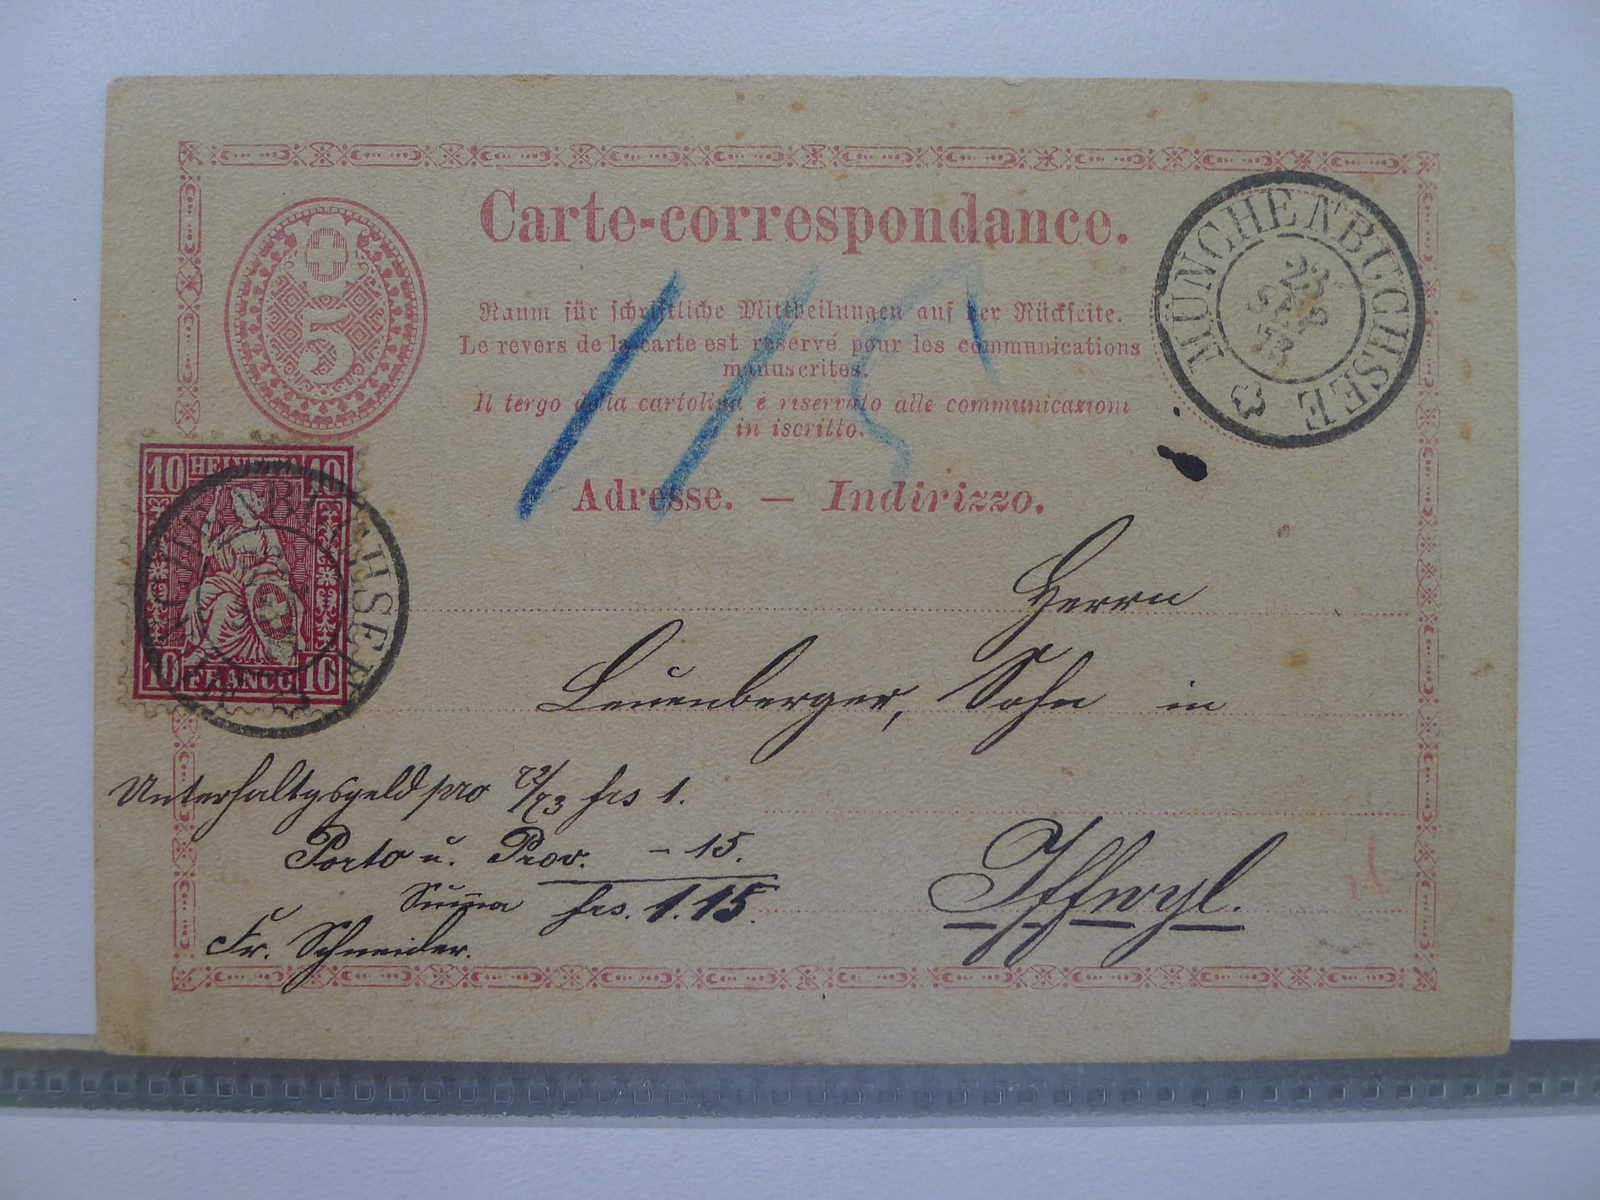 Carte-correspondance.
5
Raum für schriftliche Mittheilungen auf der Rückseite.
Le revers de la carte est réservé pour les communications
manuscrites.
Il tergo della cartolina è riservato alle communicazioni
in iscritto.
115
MÜNCHENBUCHSEE
23
SEP
73
Adresse. — Indirizzo.
10 HELVETIA 10
10 FRANCO 10
Herrn
Leuenberger, Sohn in
Unterhaltgsgeld pro 72/73 frs 1.
Porto u. Prov. – 15.
Summa frs. 1.15.
Iffwyl.
Fr. Schneider.